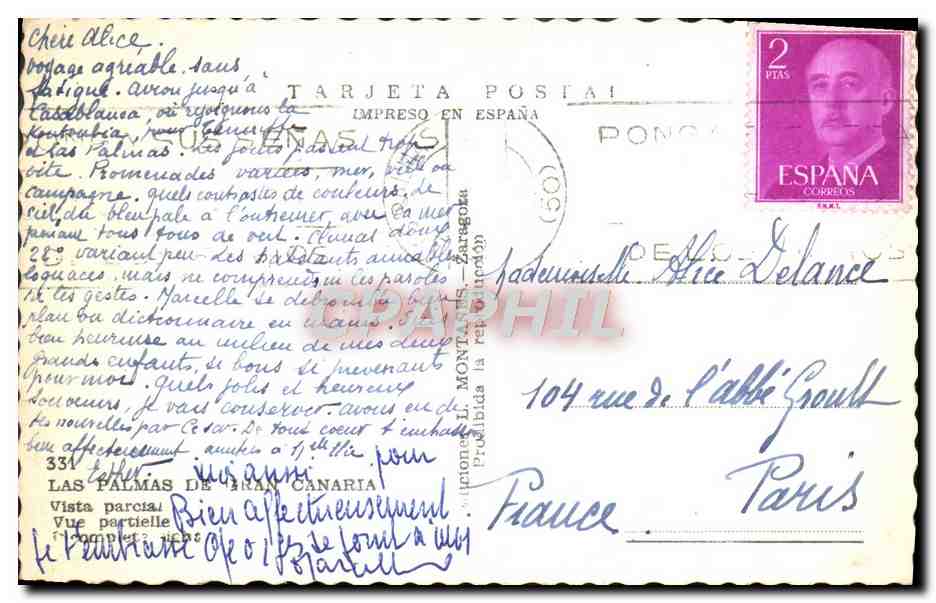 Chère Alice.
voyage agréable. sans
fatigue. avion jusqu'à
Casablanca, où rejoignons la
Koutoubia, pour Ténériffe
et Las Palmas. Les jours passent trop
vite. Promenades variées, mer, ville ou
campagne. quels contrastes de couleurs. de
ciel du bleu pale à l'outremer, avec la mer
prenant tous tons de vert. Climat doux
28° variant peu. Les habitants aimables
loquaces, mais ne comprenons ni les paroles
ni les gestes. Marcelle se débrouille bien
plan ou dictionnaire en mains. Suis
bien heureuse au milieu de mes deux
grands enfants, si bons si prévenants
pour moi. quels jolis et heureux
souvenirs, je vais conserver. avons eu de
tes nouvelles par César. De tout coeur t'embrasse
bien affectueusement amitiés à
Esther.
pour
Bien affectueusement
je t'embrasse
TARJETA POSTAL
IMPRESO EN ESPAÑA
SEÑAS
PONGA
(50)
2
PTAS
ESPAÑA
CORREOS
F.N.M.T.
Mademoiselle Alice Delance
104 rue de l'abbé Groult
Paris
France
Ediciones L. MONTAÑES.-Zaragoza
Prohibida la reproducción
331
LAS PALMAS DE GRAN CANARIA
Vista parcial
Vue partielle
CPAPHIL